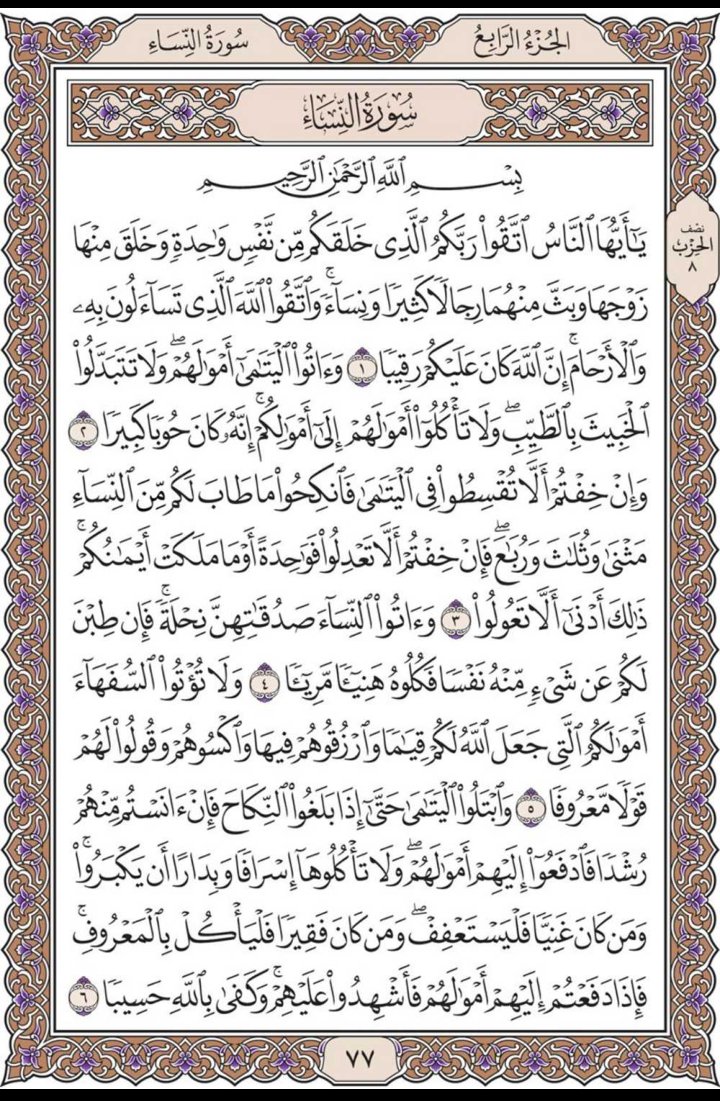 الجُزْءُ الرَّابِعُ
سُورَةُ النِّسَاءِ
سُورَةُ النِّسَاءِ
نصف
الحزب
٨
بِسْمِ ٱللَّهِ ٱلرَّحْمَٰنِ ٱلرَّحِيمِ
يَٰٓأَيُّهَا ٱلنَّاسُ ٱتَّقُوا۟ رَبَّكُمُ ٱلَّذِى خَلَقَكُم مِّن نَّفْسٍ وَٰحِدَةٍ وَخَلَقَ مِنْهَا
زَوْجَهَا وَبَثَّ مِنْهُمَا رِجَالًا كَثِيرًا وَنِسَآءً ۚ وَٱتَّقُوا۟ ٱللَّهَ ٱلَّذِى تَسَآءَلُونَ بِهِۦ
وَٱلْأَرْحَامَ ۚ إِنَّ ٱللَّهَ كَانَ عَلَيْكُمْ رَقِيبًا ١ وَءَاتُوا۟ ٱلْيَتَٰمَىٰٓ أَمْوَٰلَهُمْ ۖ وَلَا تَتَبَدَّلُوا۟
ٱلْخَبِيثَ بِٱلطَّيِّبِ ۖ وَلَا تَأْكُلُوٓا۟ أَمْوَٰلَهُمْ إِلَىٰٓ أَمْوَٰلِكُمْ ۚ إِنَّهُۥ كَانَ حُوبًا كَبِيرًا ٢
وَإِنْ خِفْتُمْ أَلَّا تُقْسِطُوا۟ فِى ٱلْيَتَٰمَىٰ فَٱنكِحُوا۟ مَا طَابَ لَكُم مِّنَ ٱلنِّسَآءِ
مَثْنَىٰ وَثُلَٰثَ وَرُبَٰعَ ۖ فَإِنْ خِفْتُمْ أَلَّا تَعْدِلُوا۟ فَوَٰحِدَةً أَوْ مَا مَلَكَتْ أَيْمَٰنُكُمْ ۚ
ذَٰلِكَ أَدْنَىٰٓ أَلَّا تَعُولُوا۟ ٣ وَءَاتُوا۟ ٱلنِّسَآءَ صَدُقَٰتِهِنَّ نِحْلَةً ۚ فَإِن طِبْنَ
لَكُمْ عَن شَىْءٍ مِّنْهُ نَفْسًا فَكُلُوهُ هَنِيٓـًٔا مَّرِيٓـًٔا ٤ وَلَا تُؤْتُوا۟ ٱلسُّفَهَآءَ
أَمْوَٰلَكُمُ ٱلَّتِى جَعَلَ ٱللَّهُ لَكُمْ قِيَٰمًا وَٱرْزُقُوهُمْ فِيهَا وَٱكْسُوهُمْ وَقُولُوا۟ لَهُمْ
قَوْلًا مَّعْرُوفًا ٥ وَٱبْتَلُوا۟ ٱلْيَتَٰمَىٰ حَتَّىٰٓ إِذَا بَلَغُوا۟ ٱلنِّكَاحَ فَإِنْ ءَانَسْتُم مِّنْهُمْ
رُشْدًا فَٱدْفَعُوٓا۟ إِلَيْهِمْ أَمْوَٰلَهُمْ ۖ وَلَا تَأْكُلُوهَآ إِسْرَافًا وَبِدَارًا أَن يَكْبَرُوا۟ ۚ
وَمَن كَانَ غَنِيًّا فَلْيَسْتَعْفِفْ ۖ وَمَن كَانَ فَقِيرًا فَلْيَأْكُلْ بِٱلْمَعْرُوفِ ۚ
فَإِذَا دَفَعْتُمْ إِلَيْهِمْ أَمْوَٰلَهُمْ فَأَشْهِدُوا۟ عَلَيْهِمْ ۚ وَكَفَىٰ بِٱللَّهِ حَسِيبًا ٦
٧٧